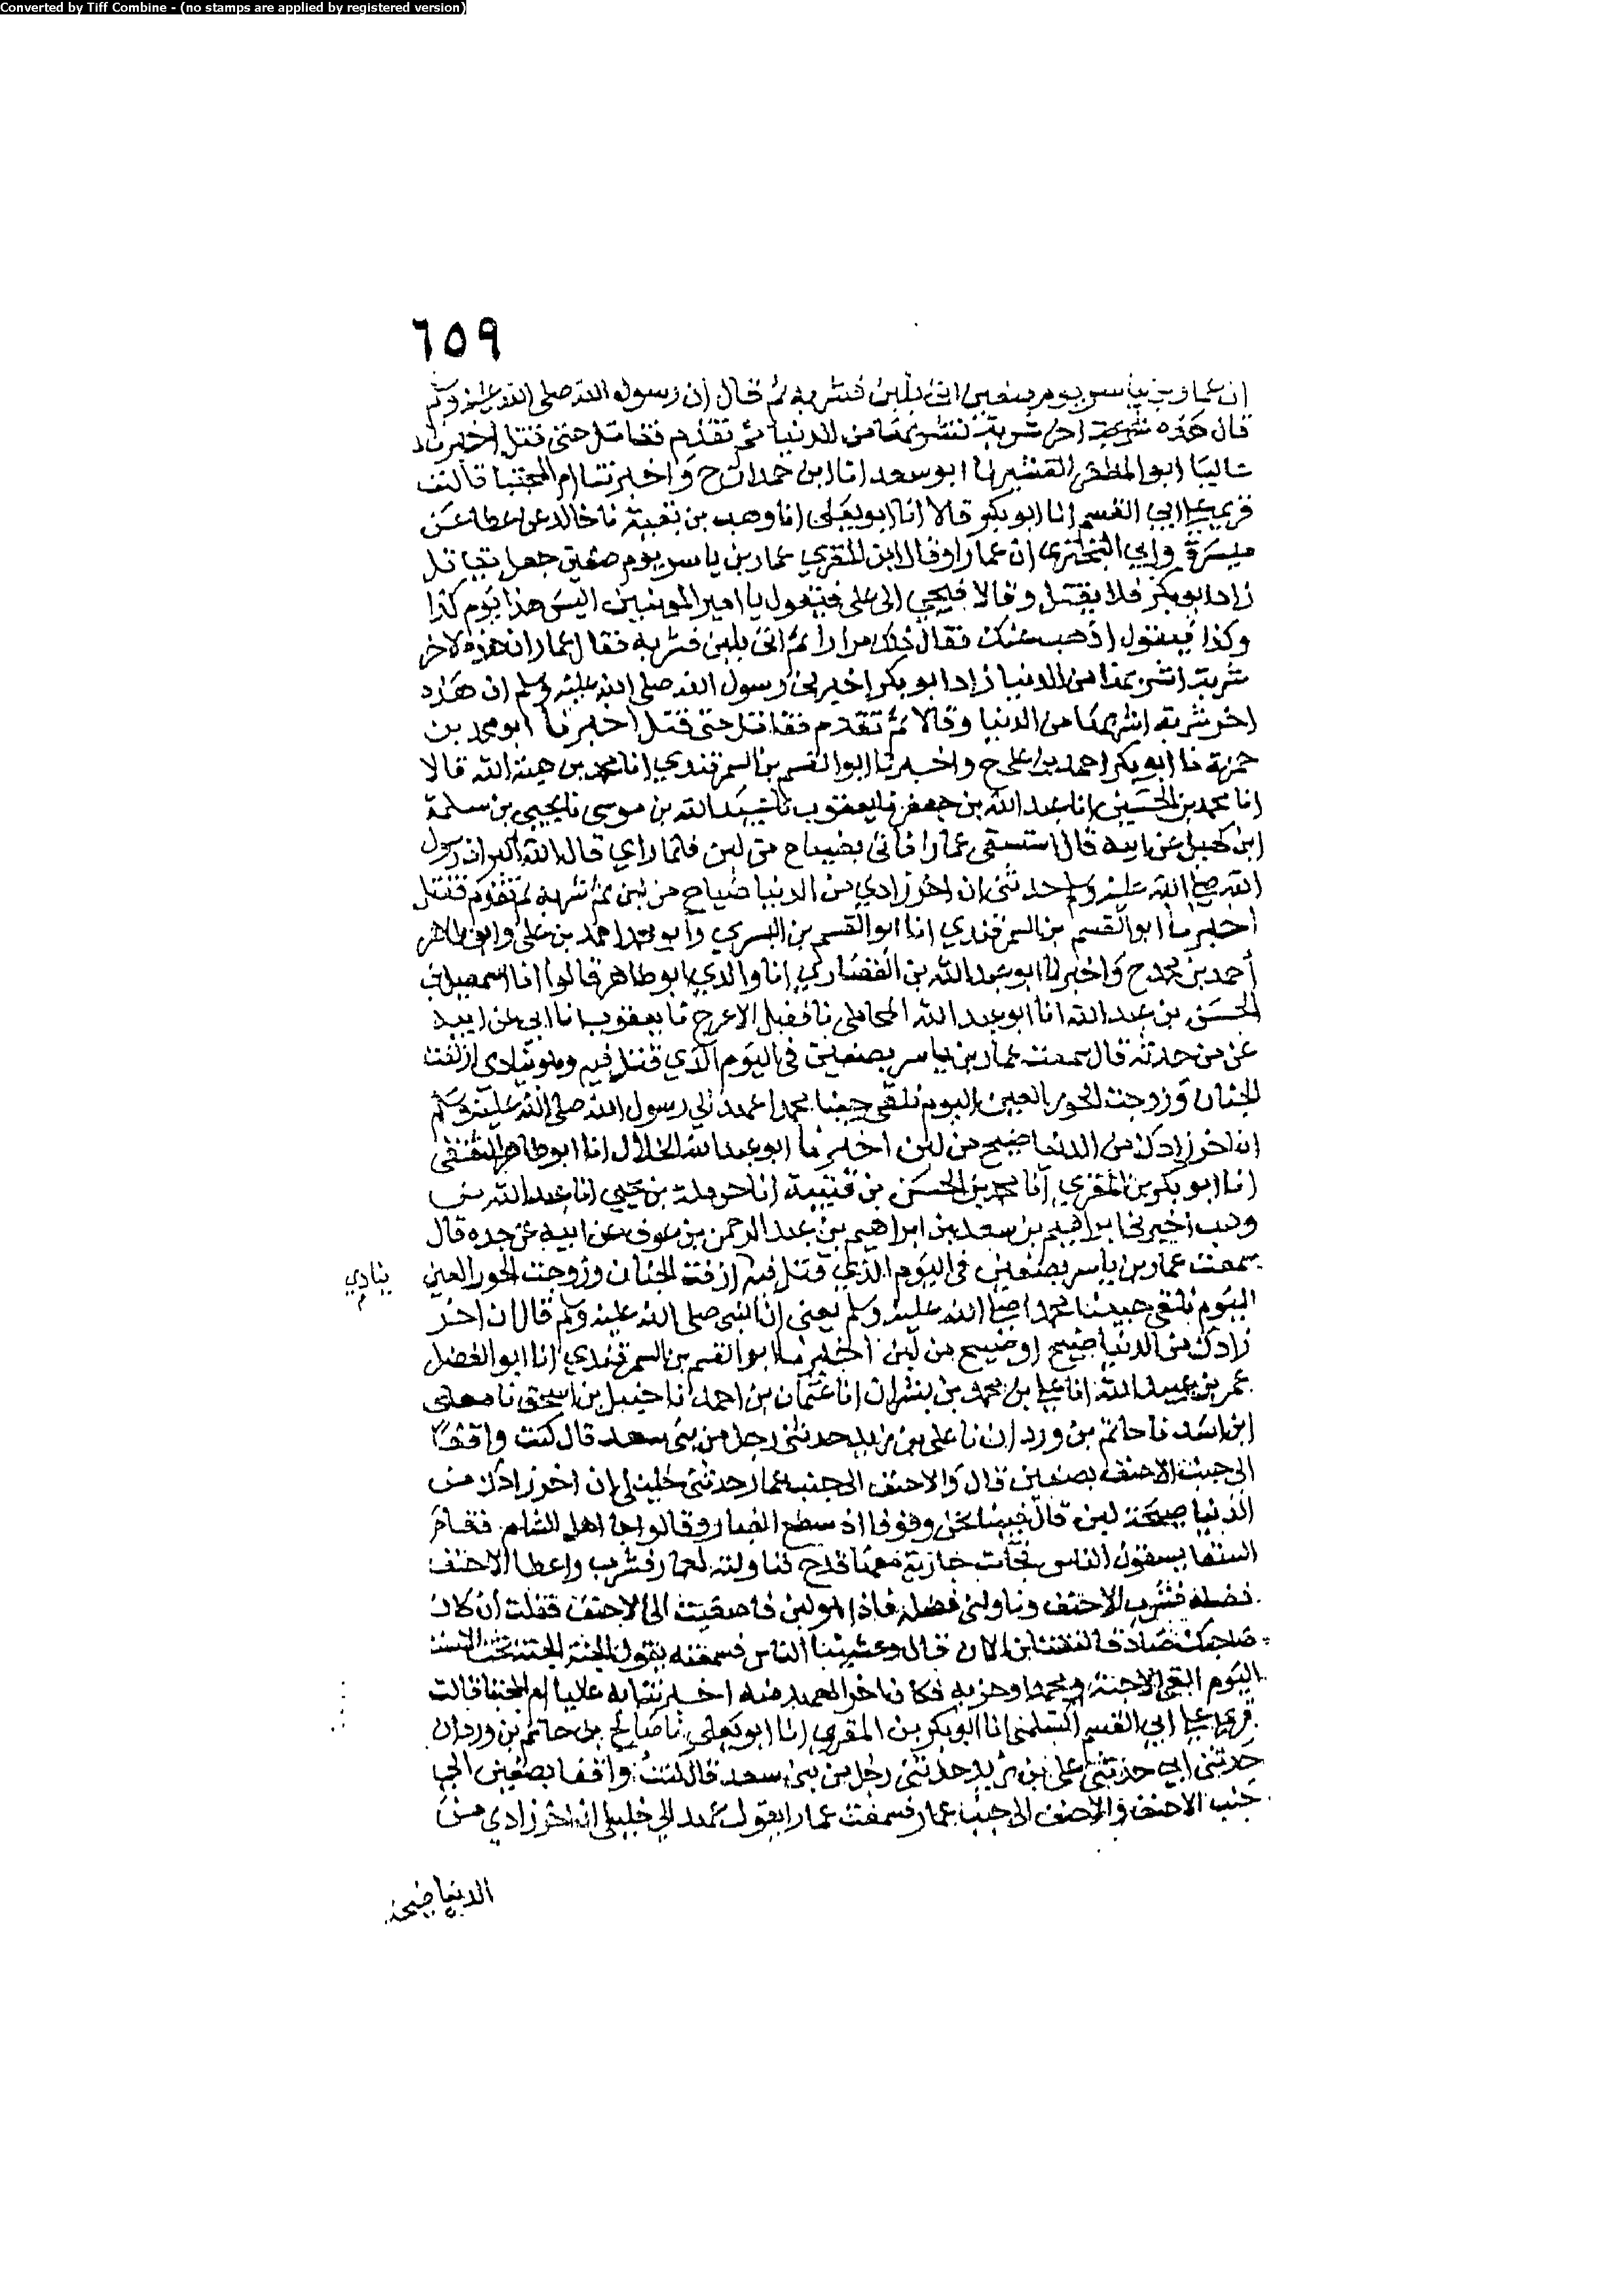 Converted by Tiff Combine - (no stamps are applied by registered version)
٦٥٩
ان عمار بن ياسر يوم صفين اتى بلبن فشربه ثم قال ان رسول الله صلى الله عليه وسلم
قال هذه شربة اخر شربة تشربها من الدنيا ثم تقدم فقاتل حتى قتل اخبرناه
عاليا ابو المظفر القشيري انا ابو سعد انا ابن حمدان ح واخبرتنا ام المجتبا قالت
قري على ابي القسم انا ابو بكر قالا انا ابو يعلى انا وهب بن بقية نا خالد عن عطا عن
ميسرة وابي البختري ان عمارا وقال ابن المقري عمار بن ياسر يوم صفين جعل يقاتل
زاد ابو بكر فلا يقتل وقالا فيجي الى علي فيقول يا امير المومنين اليس هذا يوم كذا
وكذا فيقول اذهب عنك فقال ذلك مرارا ثم اتى بلبن فشربه فقال عمار ان هذه لاخر
شربة اشربها من الدنيا زاد ابو بكر اخبرني رسول الله صلى الله عليه وسلم ان هذه
اخر شربة اشربها من الدنيا وقالا ثم تقدم فقاتل حتى قتل اخبرنا ابو محمد بن
حمزة نا ابو بكر احمد بن علي ح واخبرنا ابو القسم بن السمرقندي انا محمد بن هبة الله قالا
انا محمد بن الحسين انا عبد الله بن جعفر نا يعقوب نا عبيد الله بن موسى نا يحيى بن سلمة
ابن كهيل عن ابيه قال استسقى عمارا فاتى بضياح من لبن فلما راي قال الله اكبر ان رسول
الله صلى الله عليه وسلم حدثني ان اخر زادي من الدنيا ضياح من لبن ثم شربه ثم تقدم فقتل
اخبرنا ابو القسم بن السمرقندي انا ابو القسم بن البسري وابو محمد احمد بن علي وابو طاهر
أحمد بن محمد ح واخبرنا ابو عبد الله بن القصاري انا والدي ابو طاهر قالوا انا اسمعيل بن
الحسن بن عبد الله انا ابو عبد الله المحاملي نا فضل الاعرج نا يعقوب نا ابي عن ابيه
عن من حدثه قال سمعت عمار بن ياسر بصفين في اليوم الذي قتل فيه وهو ينادي ازلفت
الجنان وزوجت الحور العين اليوم نلقى حبيبنا محمدا عهد الي رسول الله صلى الله عليه وسلم
ان اخر زادك من الدنيا ضيح من لبن اخبرنا ابو عبد الله الخلال انا ابو طاهر الثقفي
انا ابو بكر بن المقري انا محمد بن الحسن بن قتيبة انا حرملة بن يحيى انا عبد الله بن
وهب اخبرني ابراهيم بن سعد بن ابراهيم بن عبد الرحمن بن عوف عن ابيه عن جده قال
سمعت عمار بن ياسر بصفين في اليوم الذي قتل فيه ازفت الجنان وزوجت الحور العين
ينادي
اليوم نلقى حبيبنا محمدا صلى الله عليه وسلم يعني ان النبي صلى الله عليه وسلم قال ان اخر
زادك من الدنيا ضيح او ضييح من لبن اخبرنا ابو القسم بن السمرقندي انا ابو الفضل
عمر بن عبيد الله انا علي بن محمد بن بشران انا عثمان بن احمد انا حنبل بن اسحق نا معلى
ابن اسد نا حاتم بن وردان نا علي بن يزيد حدثني رجل من بني سعد قال كنت واقفا
الى جنب الاحنف بصفين قال والاحنف الى جنب عمار حدثني خليلي ان اخر زادك من
الدنيا ضيحة لبن قال فبينا نحن وقوفا اذ سطع الغبار وقالوا جا اهل الشام فقام
السقا يسقون الناس فجات جارية معها قدح فناولته لعمار فشرب واعطا الاحنف
فضله فشرب الاحنف وناولني فضله فاذا هو لبن فاصغيت الى الاحنف فقلت ان كان
صاحبك صادقا قال وغشينا الناس فسمعته يقول الجنة الجنة تحت الاسنة
اليوم القى الاحبة محمدا وحزبه فكان اخر العهد منه اخبرتنا به عاليا ام المجتبا قالت
قري على ابي القسم السلمي انا ابو بكر بن المقري انا ابو يعلى نا صالح بن حاتم بن وردان
حدثني ابي حدثني علي بن يزيد حدثني رجل من بني سعد قال كنت واقفا بصفين الى
جنب الاحنف والاحنف الى جنب عمار فسمعت عمارا يقول عهد الي خليلي ان اخر زادي من
الدنيا ضيحة